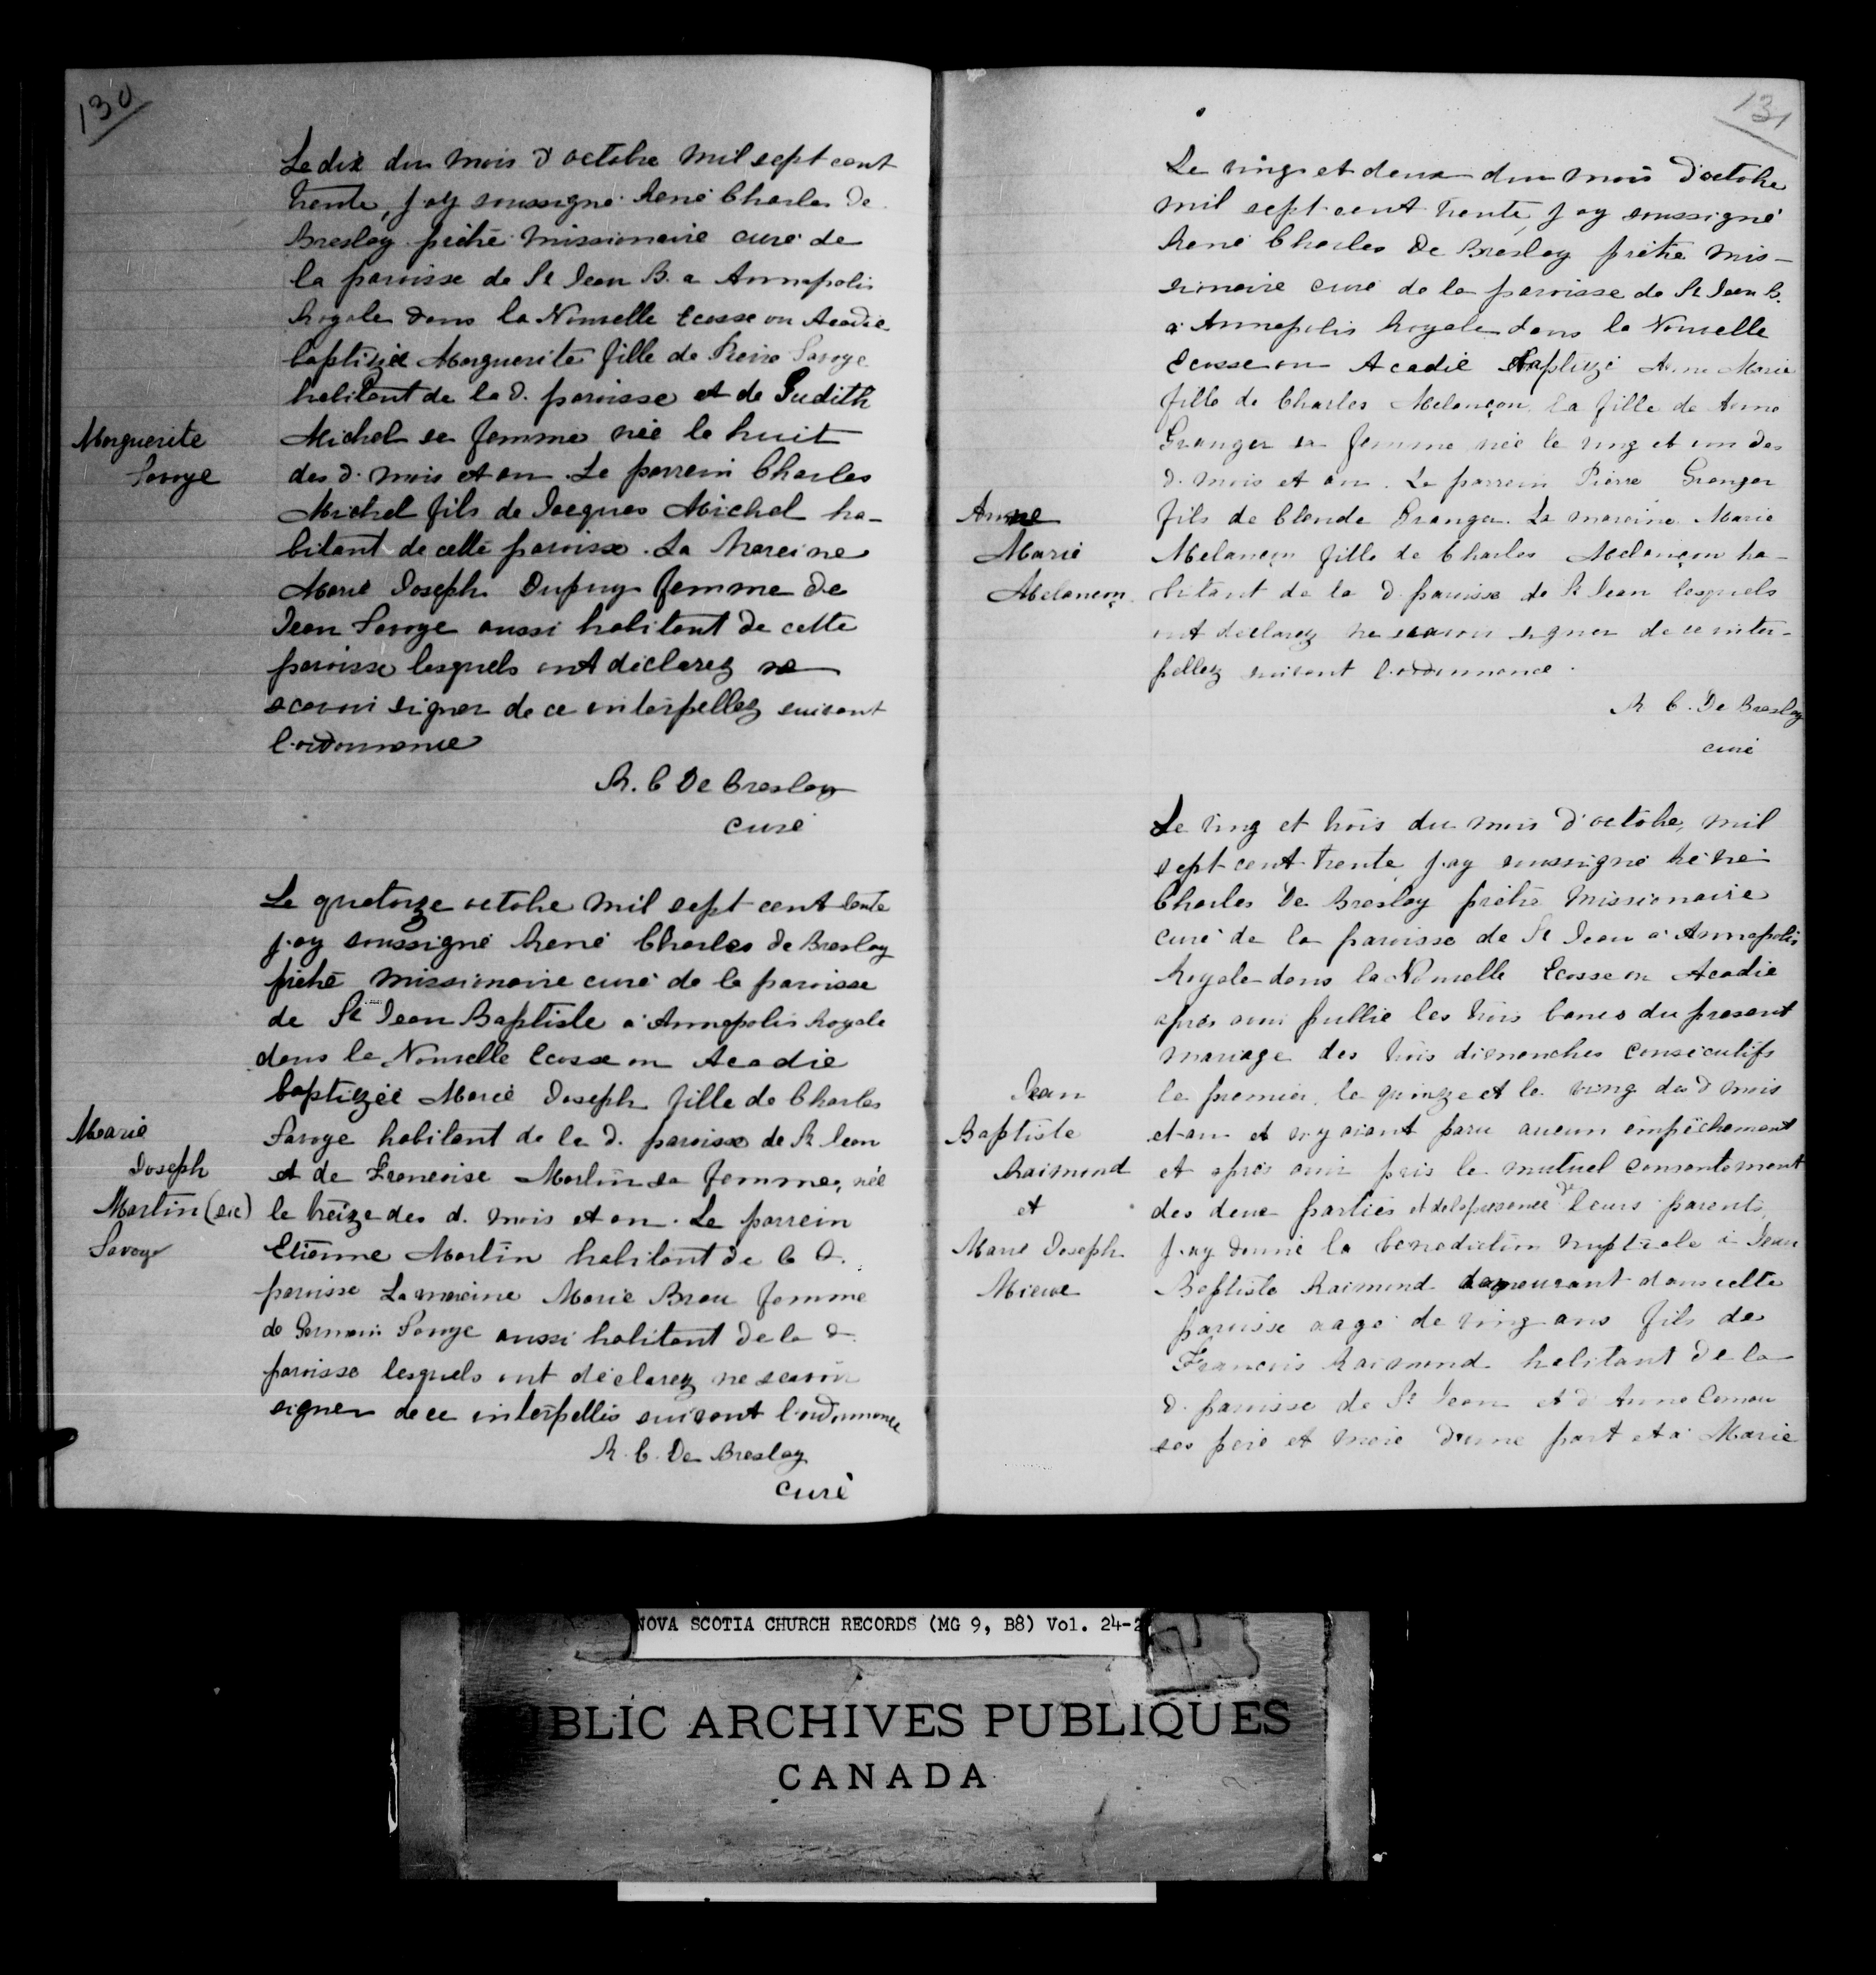 130
Le dix du mois d'octobre mil sept cent
trente, j'ay soussigné René Charles de
Breslay prêtre missionaire curé de
la paroisse de St Jean B. a Annapolis
Royale dans la Nouvelle Ecosse ou Acadie
baptizée Marguerite fille de Pierre Savoye
habitant de la d. paroisse et de Judith
Michel sa femme née le huit
des d. mois et an. Le parrein Charles
Michel fils de Jacques Michel ha-
bitant de cette paroisse. La Mareine
Marie Joseph Dupuy femme de
Jean Savoye aussi habitant de cette
paroisse lesquels ont declarez ne
scavoir signer de ce interpellez suivant
l'ordonnance
R. C De Breslay
curé
Marguerite
Savoye
Le quatorze octobre mil sept cent trente
j'ay soussigné René Charles de Breslay
prêtre missionaire curé de la paroisse
de St Jean Baptiste a Annapolis Royale
dans la Nouvelle Ecosse ou Acadie
baptizée Marie Joseph fille de Charles
Savoye habitant de la d. paroisse de St Jean
et de Francoise Martin sa femme, née
le treize des d. mois et an. Le parrein
Etienne Martin habitant de la d.
paroisse La mareine Marie Brau femme
de Germain Savoye aussi habitant de la d.
paroisse lesquels ont déclarez ne scavoir
signer de ce interpellés suivant l'ordonnance
R. C. De Breslay
curé
Marie
Joseph
Martin (sic)
Savoye
131
Le ving et deux du mois d'octobre
mil sept cent trente, j'ay soussigné
René Charles De Breslay prêtre mis-
sionaire curé de la paroisse de St Jean B.
a Annapolis Royale dans la Nouvelle
Ecosse ou Acadie baptizé Anne Marie
fille de Charles Melançon, la fille de Anne
Granger sa femme née le ving et un des
d. mois et an. Le parrein Pierre Granger
fils de Claude Granger. La mareine Marie
Melançon fille de Charles Melançon ha-
bitant de la d. paroisse de St Jean lesquels
ont declarez ne scavoir signer de ce inter-
pellez suivant l'ordonnance.
R C. De Breslay
curé
Anne
Marie
Melançon
Le ving et trois du mois d'octobre, mil
sept cent trente, j'ay soussigné René
Charles De Breslay prêtre missionaire
curé de la paroisse de St Jean a Annapolis
Royale dans la Nouvelle Ecosse ou Acadie
apres avoir publié les trois bancs du present
mariage des trois dimanches consécutifs
le premier, le quinze et le ving du d mois
et an et n'y aiant paru aucun empêchement
et après avoir pris le mutuel consentement
des deux parties et de la presence de leurs parents,
j'ay donné la benediction nuptiale à Jean
Baptiste Raimond demeurant dans cette
paroisse aagé de ving ans fils de
Francois Raimond habitant de la
d. paroisse de St Jean et d'Anne Comeau
ses pere et mere d'une part et a Marie
Jean
Baptiste
Raimond
et
Marie Joseph
Mieuse
NOVA SCOTIA CHURCH RECORDS (MG 9, B8) Vol. 24-2
BLIC ARCHIVES PUBLIQUES
CANADA